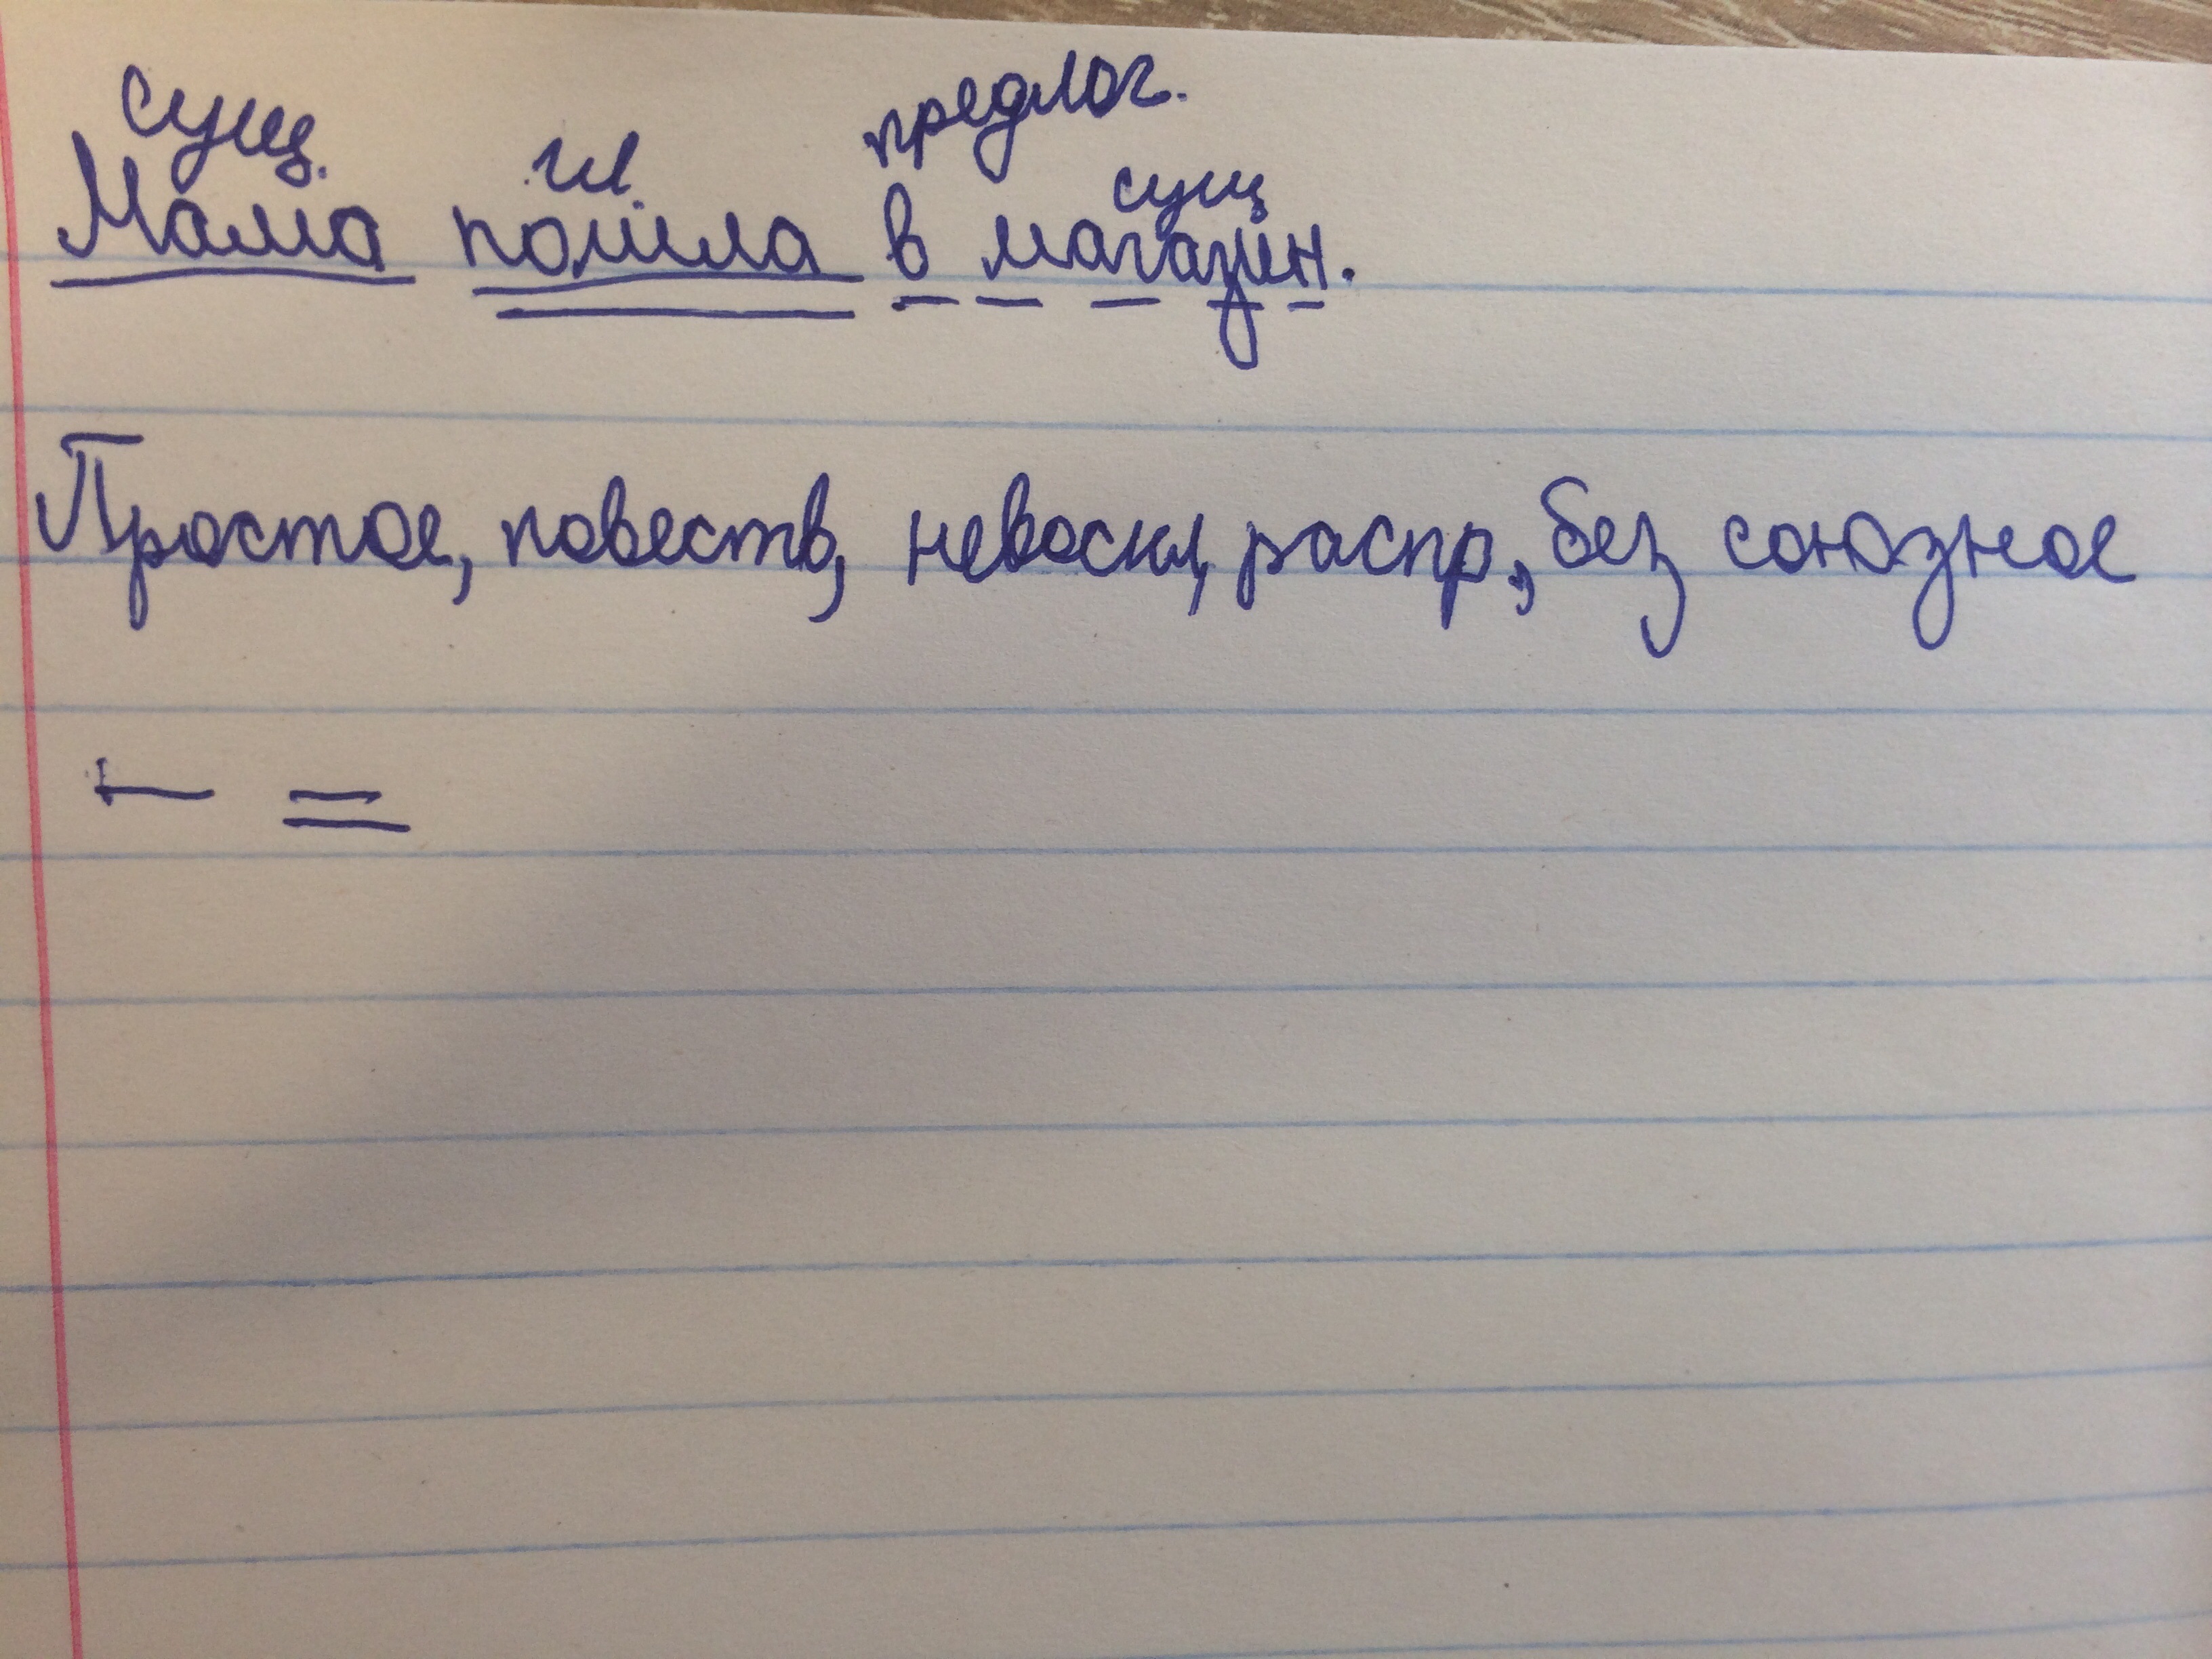 сущ. гл. предлог. сущ
Мама пошла в магазин.
Простое, повеств, невоскл, распр, без союзное